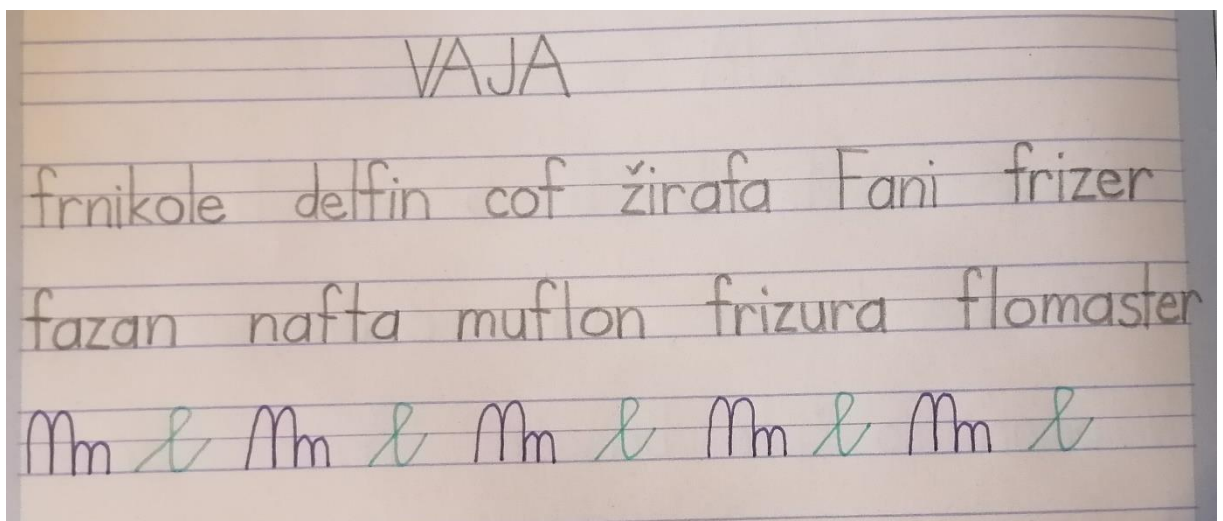 VAJA
frnikole delfin cof žirafa Fani frizer
fazan nafta muflon frizura flomaster
Mm l Mm l Mm l Mm l Mm l